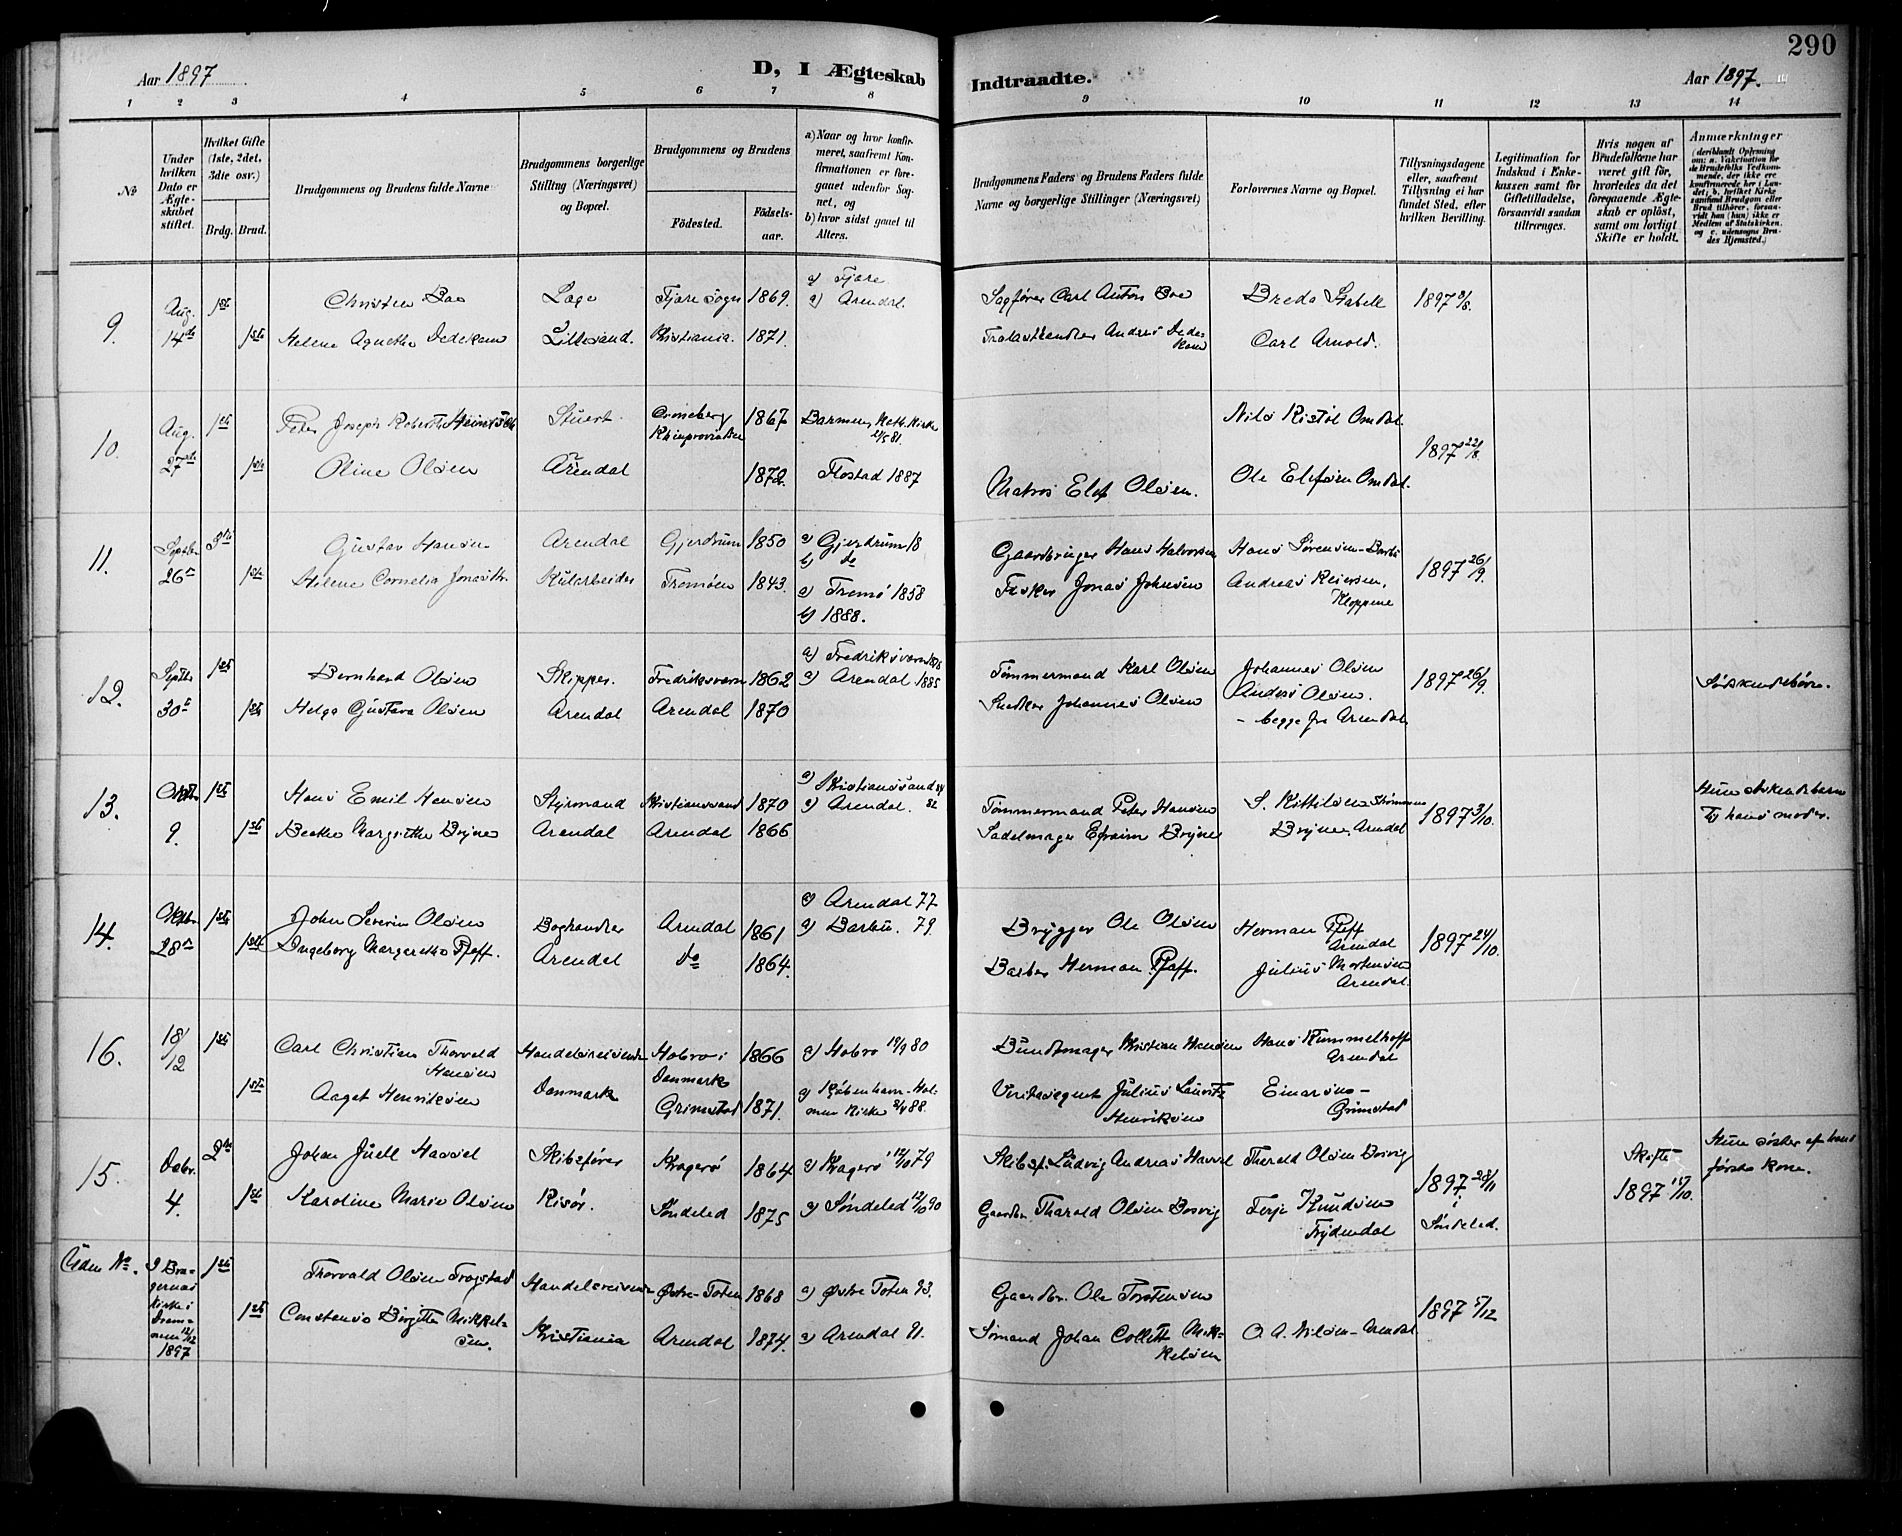 290
Aar 1897
D, I Ægteskab Indtraadte.
Aar 1897.
1 2 3 4 5 6 7 8 9 10 11 12 13 14
No
Under hvilken Dato er Ægteskabet stiftet.
Hvilket Gifte (1ste, 2det, 3die osv.)
Brdg. Brud.
Brudgommens og Brudens fulde Navne
Brudgommens borgerlige Stilling (Næringsvei) og Bopæl.
Brudgommens og Brudens
Födested. Födsels-aar.
a) Naar og hvor konfirmeret, saafremt Konfirmationen er foregaaet udenfor Sognet, og
b) hvor sidst gaaet til Alters.
Brudgommens Faders og Brudens Faders fulde Navne og borgerlige Stillinger (Næringsvei)
Forlovernes Navne og Bopæl.
Tillysningsdagene eller, saafremt Tillysning ei har fundet Sted, efter hvilken Bevilling.
Legitimation for Indskud i Enkekassen samt for Giftetilladelse, forsaavidt saadan tiltrænges.
Hvis nogen af Brudefolkene har været gift för, hvorledes da det foregaaende Ægteskab er oplöst, samt om lovligt Skifte er holdt.
Anmærkninger
(deriblandt Oplysning om: a. Vakcination for de Brudefolks Vedkommende, der ikke ere konfirmerede her i Landet; b. hvilket Kirkesamfund Brudgom eller Brud tilhörer, forsaavidt han (hun) ikke er Medlem af Statskirken, og c. udensogns Brudes Hjemsted.)
9. Aug. 14de 1ste Christen Boe Læge Fjære Sogn 1869. a) Fjære Sagfører Carl Anton Boe Breda Stabell 1897 8/8.
a) Arendal.
1ste Helene Agnethe Dedekam Lillesand. Kristiania. 1871. Trælasthandler Andreas Dedekam Carl Arnold.
10. Aug. 27de 1ste Peter Joseph Robert Stuert 1867 Barmen Kath. Kirke 21/5 81. Nils Ristøl Omdal. 1897 22/8.
1ste Oline Olsen Arendal 1872. Flostad 1887 Matros Elef Olsen. Ole Elefsen Omdal.
11. Septbr. 26de Gustav Hansen Arendal Gjerdrum 1850 a) Gjerdrum 18 Gaardbruger Hans Halvorsen Hans Sørensen-Barbu 1897 26/9.
b) do
1ste Helene Cornelia Jonasdtr. Kularbeider Tromøen 1843. a) Tromø 1858 Fisker Jonas Johnsen Andreas Reiersen, Kloppene
b) 1888.
12. Septbr. 30te 1ste Bernhard Olsen Skipper. Fredriksværn 1862 a) Fredriksværn Tømmermand Karl Olsen Johannes Olsen 1897 26/9. Søskendebørn.
a) Arendal 1885
1ste Helga Gustava Olsen Arendal Arendal 1870 Snedker Johannes Olsen Anders Olsen.
- begge fra Arendal
13. Oktbr. 9. 1ste Hans Emil Hansen Styrmand Kristianssand 1870 a) Kristianssand Tømmermand Peter Hansen S. Kittilsen 1897 3/10. Hun søskendebarn
a) Arendal. 82
1ste Beathe Margrethe Brijne Arendal Arendal 1866 Sadelmager Efraim Brijne Brijne, Arendal til hans moder.
14. Oktbr. 28de 1ste John Severin Olsen Boghandler Arendal 1861 a) Arendal 77 Brygger Ole Olsen Herman Pfaff Arendal 1897 24/10.
a) Barbu. 79.
1ste Ingeborg Margrethe Pfaff. Arendal do 1864. Barber Herman Pfaff. Julius Mortensen Arendal.
16. 18/12 1ste Carl Christian Thorvald Hansen Handelsreisende Hobro i Danmark 1866 a) Hobro 80 Bundtmager Kristian Hansen Hans Kummelhoff Arendal
1ste Aagot Henriksen Danmark Grimstad 1871. a) Kjøbenhavn-Holmen Kirke 88. Veritasagent Julius Lauritz Henriksen Einarsen- Grimstad
15. Decbr. 4. 2de Johan Juell Hassel Skibsfører Kragerø 1864 a) Kragerø 12/10 79 Skibsf. Ludvig Andreas Hassel Tharald Olsen Bosvig 1897 28/11 i Søndeled. Skifte 1897 15/10. Hun søster af hans første Kone.
1ste Karoline Marie Olsen Risør. Søndeled 1875 a) Søndeled 12/10 90 Gaardbr. Tharald Olsen Bosvig Terje Knudsen Frydendal
Uden No. I Bragernæs Kirke i Drammen 12/12 1897 1ste Thorvald Olsen Trogstad Handelsreisende Østre-Toten 1868 a) Østre Toten 83. Gaardbr. Ole Torstensen 1897 5/12
1ste Constanse Birgitte Mikkelsen. Kristiania Arendal 1874. a) Arendal 91. Sømand Johan Collett Mikkelsen O. A. Nilsen-Arendal